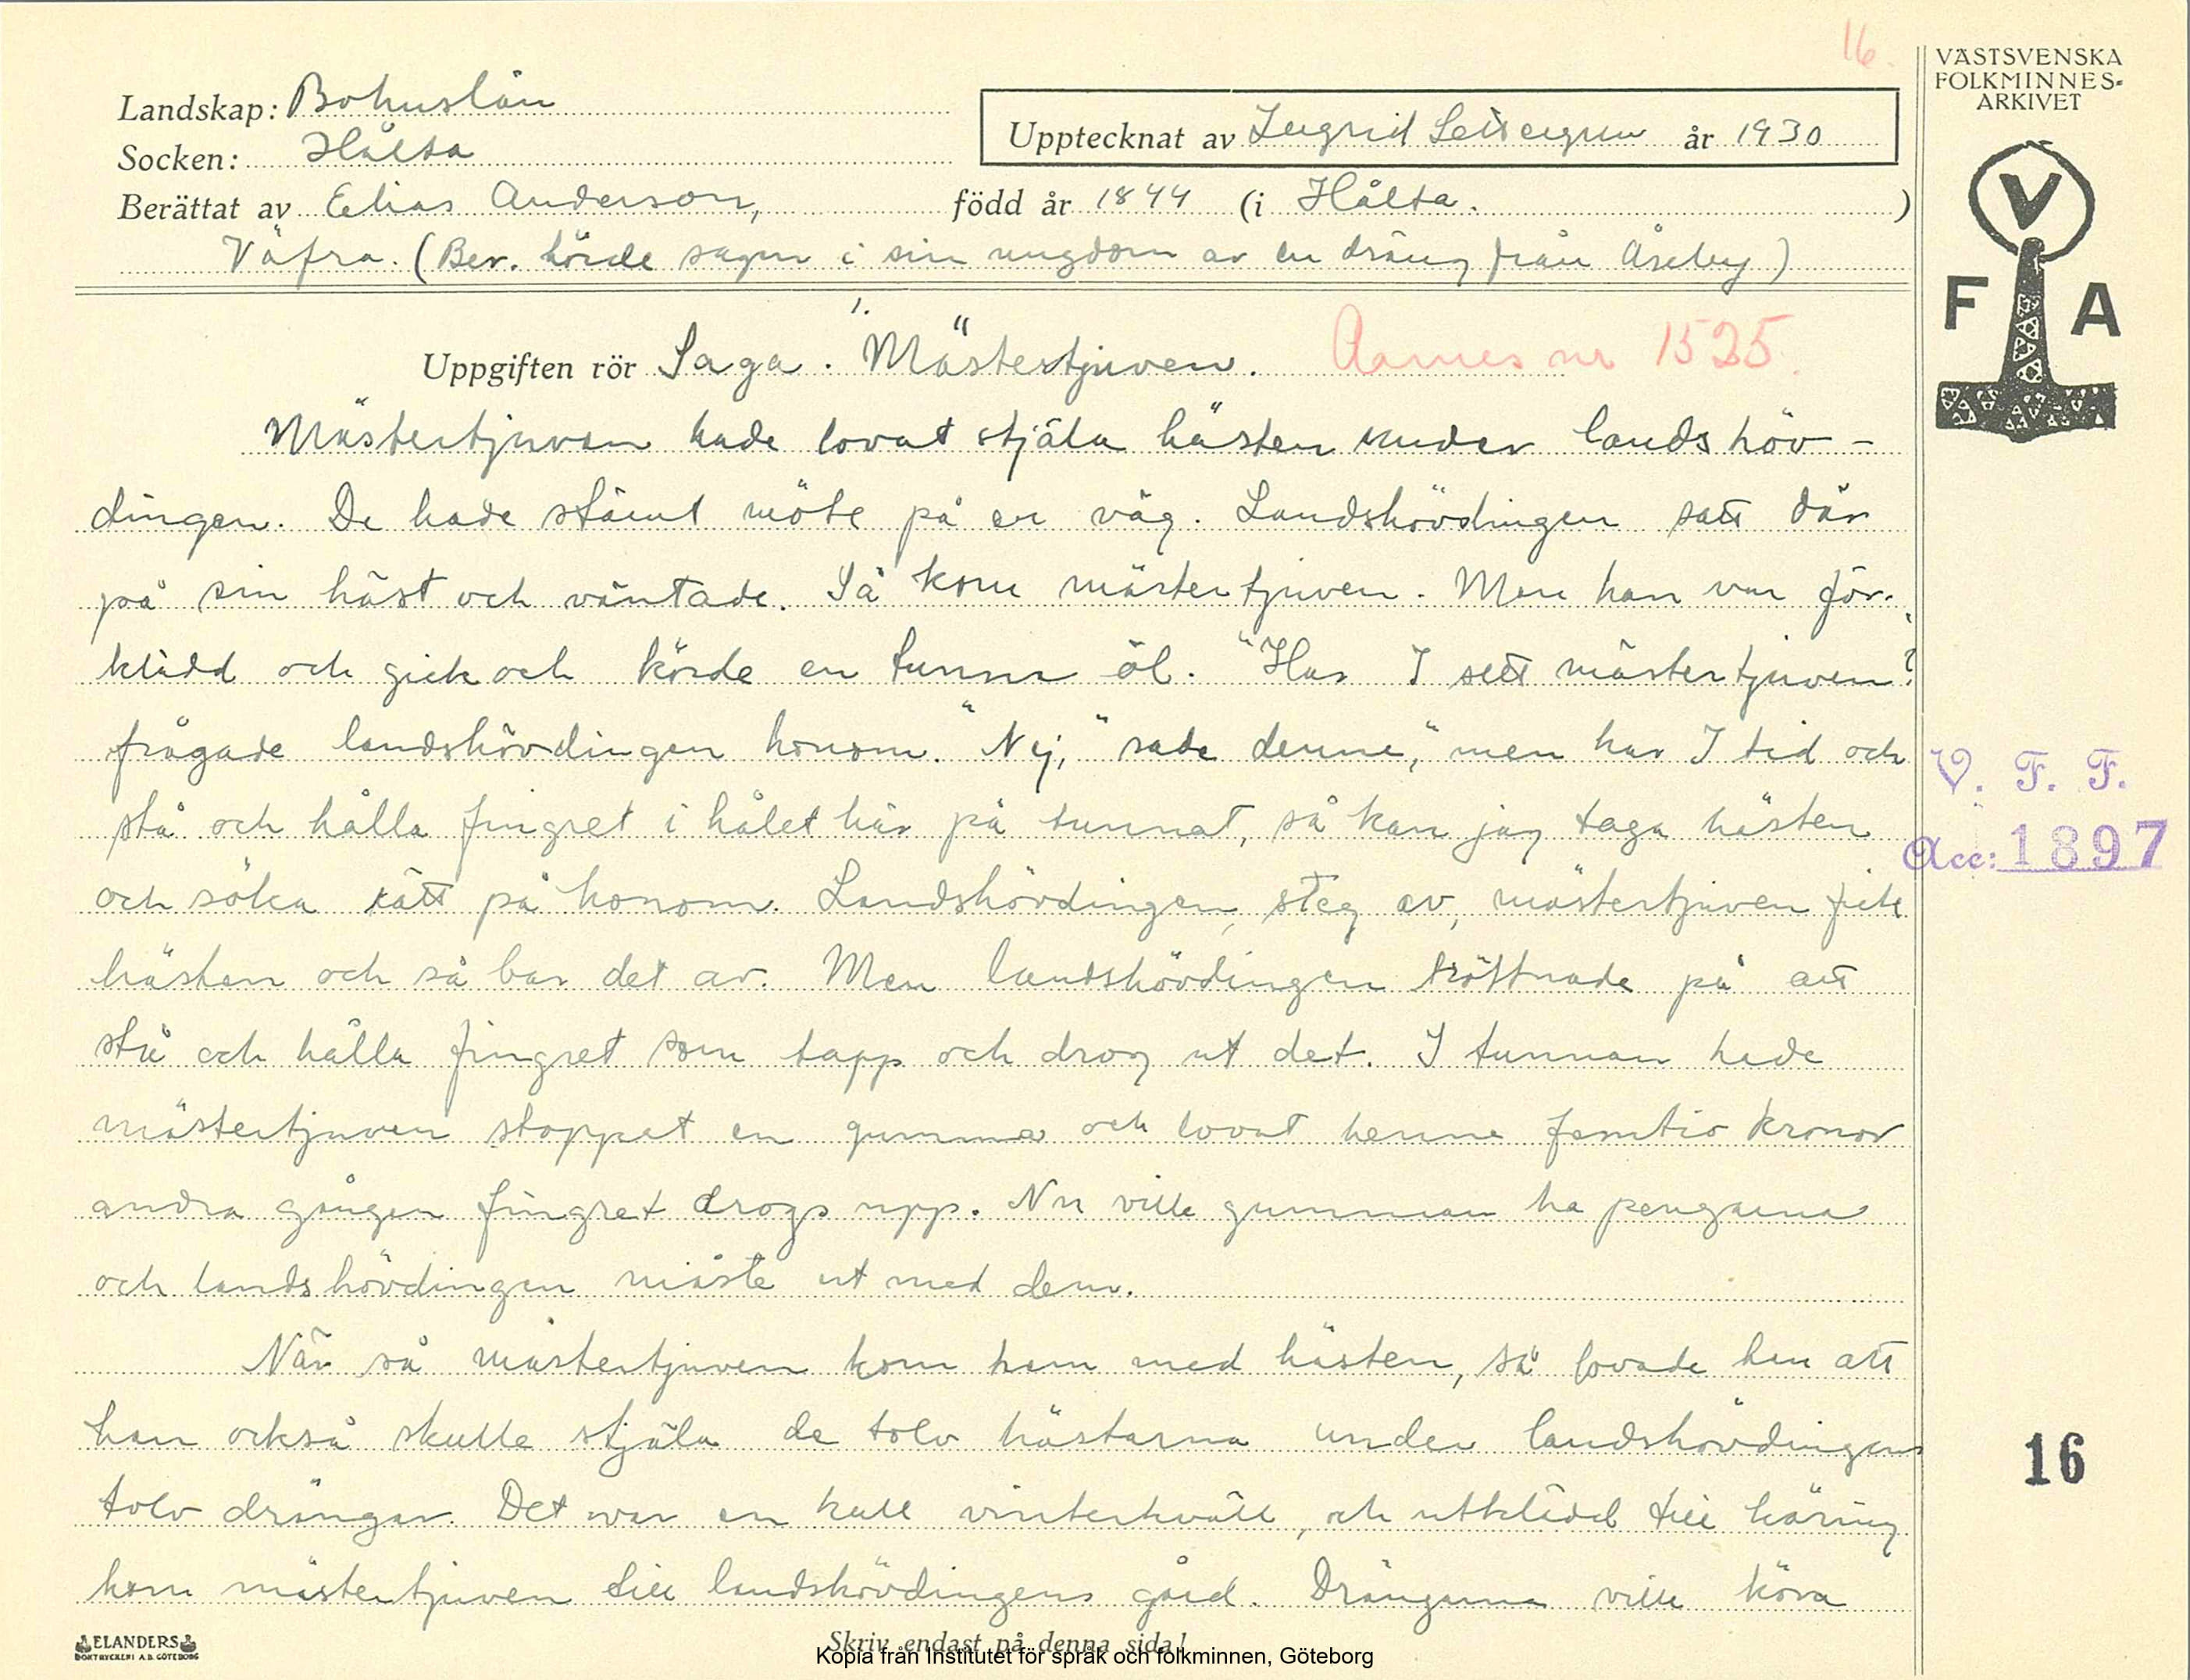 16.
VÄSTSVENSKA
FOLKMINNES-
ARKIVET
Landskap: Bohuslän
Socken: Hålta
Upptecknat av Ingrid år 1930
Berättat av Elias Anderson, född år 1844 (i Hålta. )
Väfra. (Ber. hörde sagan i sin ungdom av en dräng från Åseby)
V
F A
1.
Uppgiften rör Saga. Mästertjuven. Aarnes nr 1525.
Mästertjuven hade lovat stjäla hästen under landshöv-
dingen. De hade stämt möte på en väg. Landshövdingen satt där
på sin häst och väntade. Så kom mästertjuven. Men han var för-
klädd och gick och körde en tunna öl. "Har I sett mästertjuven?"
frågade landshövdingen honom. "Nej," sade denne, "men har I tid och
stå och hålla fingret i hålet här på tunnat, så kan jag taga hästen
och söka rätt på honom. Landshövdingen steg av, mästertjuven fick
hästen och så bar det av. Men landshövdingen tröttnade på att
stå och hålla fingret som tapp och drog ut det. I tunnan hade
mästertjuven stoppat en gumma och lovat henne femtio kronor
andra gången fingret drogs upp. Nu ville gumman ha pengarna
och landshövdingen måste ut med dem.
När så mästertjuven kom hem med hästen, så lovade han att
han också skulle stjäla de tolv hästarna under landshövdingens
tolv drängar. Det var en kall vinterkväll, och utklädd till käring
kom mästertjuven till landshövdingens gård. Drängarna ville köra
V. F. F.
Acc: 1897
16
ELANDERS
BOKTRYCKERI A.B. GÖTEBORG
Skriv endast på denna sida!
Kopia från Institutet för språk och folkminnen, Göteborg